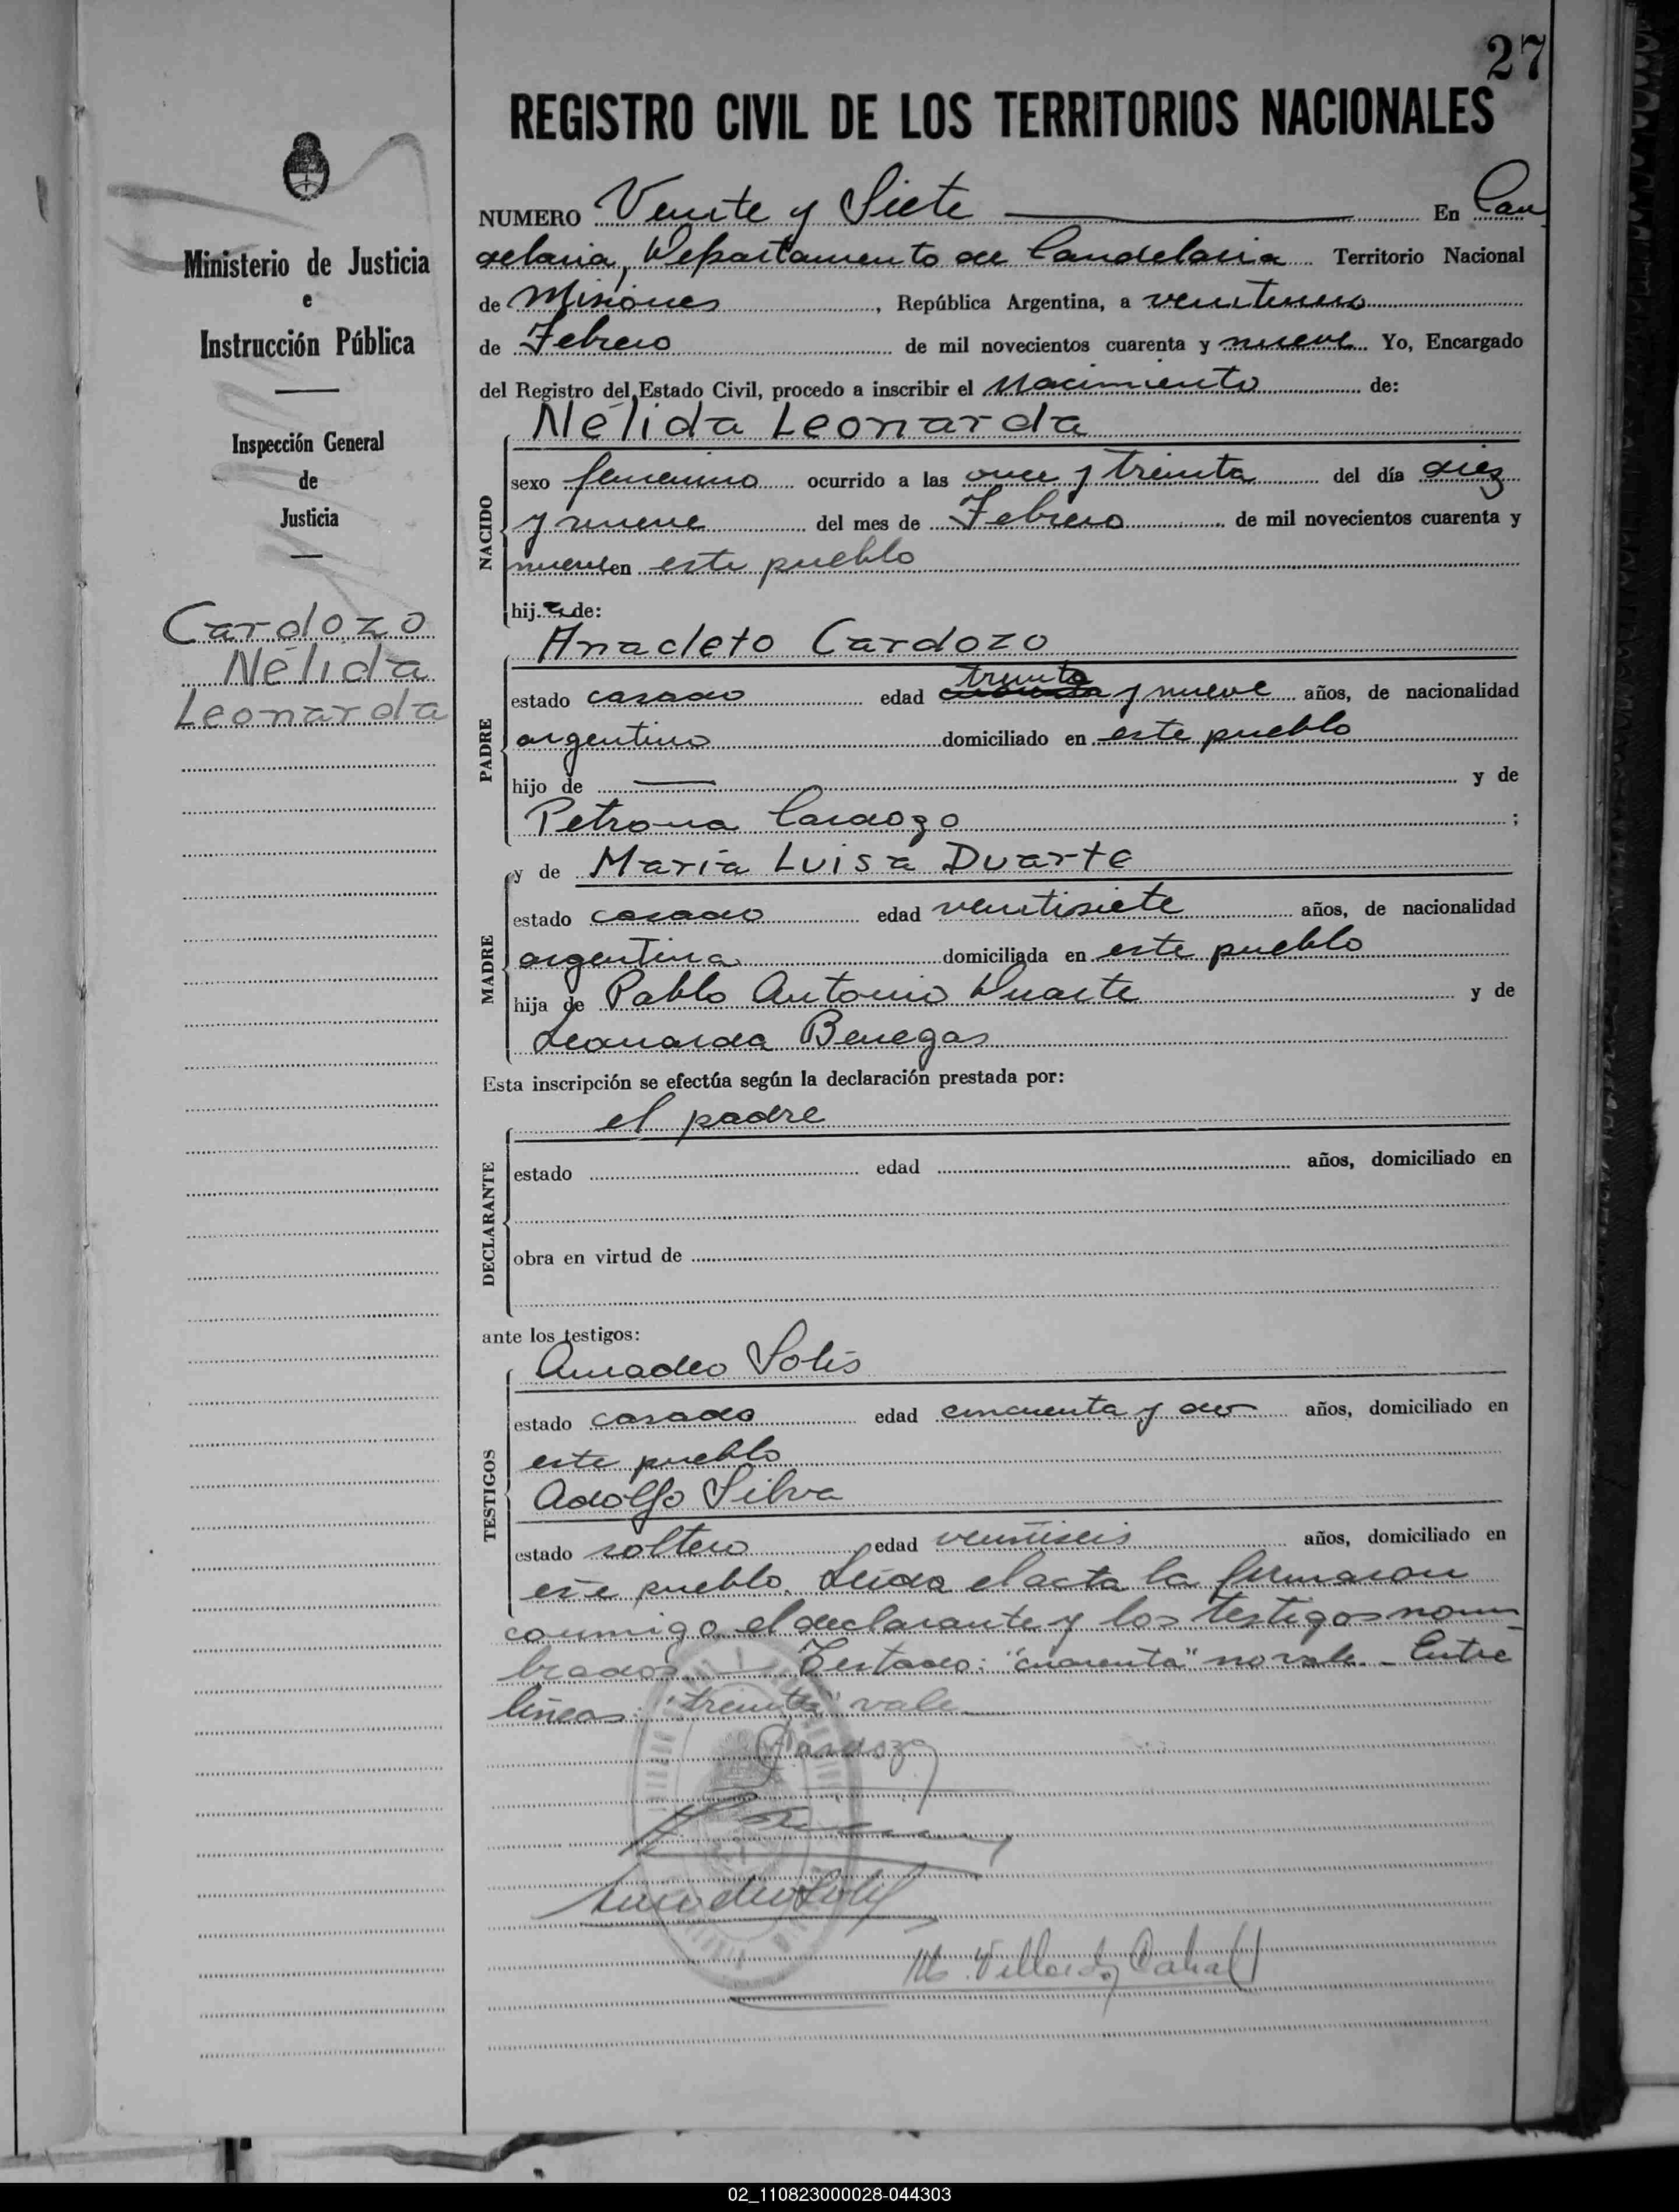 27
REGISTRO CIVIL DE LOS TERRITORIOS NACIONALES
Ministerio de Justicia
e
Instrucción Pública
Inspección General
de
Justicia
Cardozo
Nélida
Leonarda
NUMERO Veinte y Siete En Can
delaria, Departamento de Candelaria Territorio Nacional
de Misiones, República Argentina, a
de Febrero de mil novecientos cuarenta y nueve Yo, Encargado
del Registro del Estado Civil, procedo a inscribir el Nacimiento de:
Nélida Leonarda
NACIDO
sexo femenino ocurrido a las once y treinta del día diez
y nueve del mes de Febrero de mil novecientos cuarenta y
nueve en este pueblo
hija de:
Anacleto Cardozo
PADRE
treinta
estado casado edad cuarenta y nueve años, de nacionalidad
argentino domiciliado en este pueblo
hijo de — y de
Petrona Cardozo ;
MADRE
y de María Luisa Duarte
estado casado edad veintisiete años, de nacionalidad
argentina domiciliada en este pueblo
hija de Pablo Antonio Duarte y de
Leonarda Benegas
Esta inscripción se efectúa según la declaración prestada por:
el padre
DECLARANTE
estado edad años, domiciliado en
obra en virtud de
ante los testigos:
Amadeo Solís
TESTIGOS
estado casado edad cincuenta y dos años, domiciliado en
este pueblo
Adolfo Silva
estado soltero edad veintiseis años, domiciliado en
este pueblo. Leída el acta la firmaron
conmigo el declarante y los testigos nom
brados — Testado: "cuarenta" no vale. - Entre
líneas: "treinta" vale
Cardozo
Amadeo Solís
02_110823000028-044303